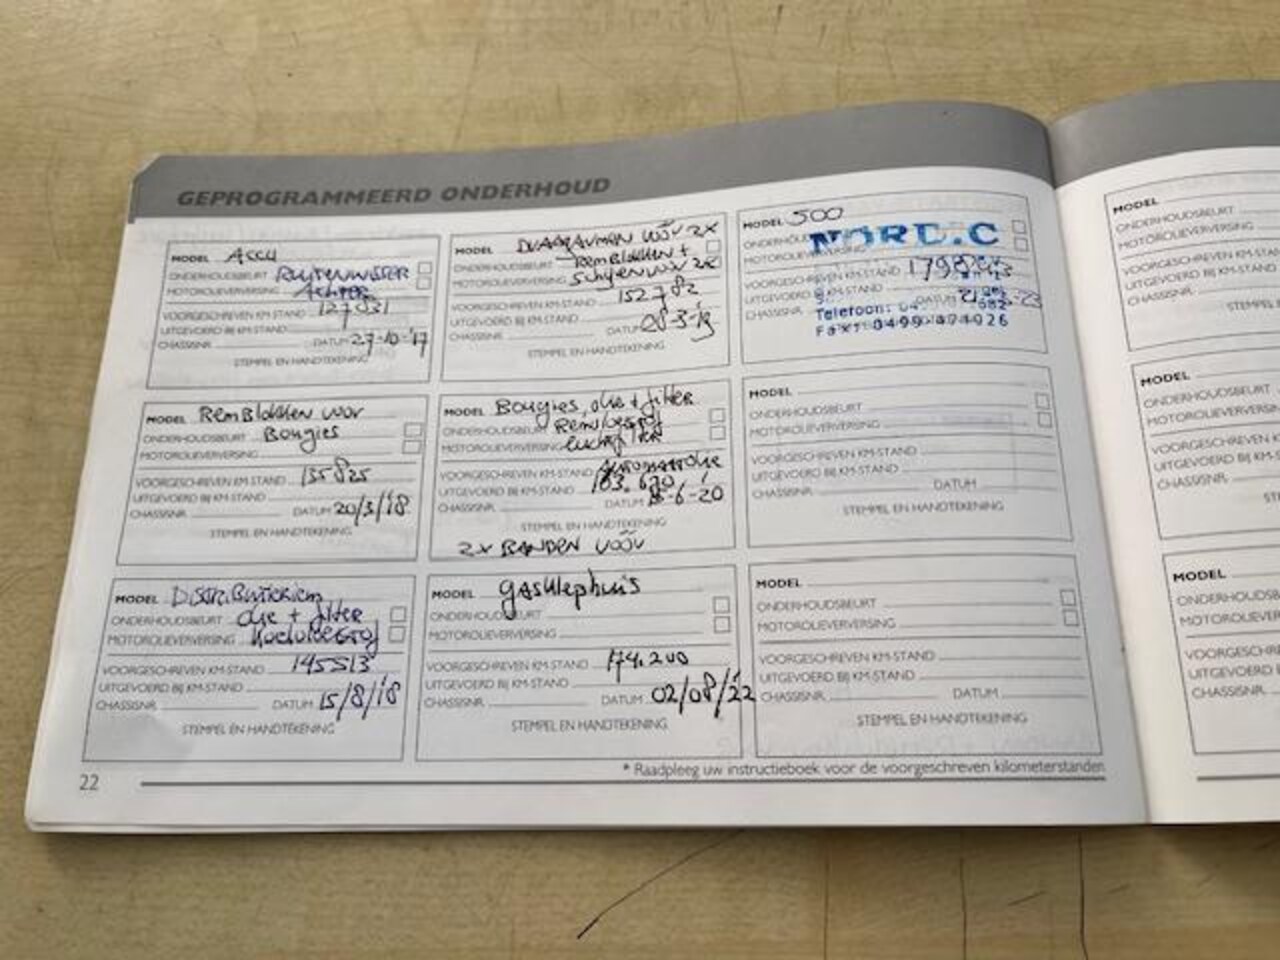 GEPROGRAMMEERD ONDERHOUD
MODEL Accu
ONDERHOUDSBEURT Ruitenwisser
MOTOROLIEVERVERSING Achter
VOORGESCHREVEN KM-STAND 127031
UITGEVOERD BIJ KM-STAND
CHASSISNR. DATUM 27-10-'17
STEMPEL EN HANDTEKENING
MODEL Remblokken voor
ONDERHOUDSBEURT Bougies
MOTOROLIEVERVERSING
VOORGESCHREVEN KM-STAND 135825
UITGEVOERD BIJ KM-STAND
CHASSISNR. DATUM 20/3/'18
STEMPEL EN HANDTEKENING
MODEL Distributieriem
ONDERHOUDSBEURT olie + filter
MOTOROLIEVERVERSING Koelvloeistof
VOORGESCHREVEN KM-STAND 145513
UITGEVOERD BIJ KM-STAND
CHASSISNR. DATUM 15/8/'18
STEMPEL EN HANDTEKENING
MODEL Draagarmen vóór 2x
ONDERHOUDSBEURT Remblokken +
MOTOROLIEVERVERSING Schijven vóór 2x
VOORGESCHREVEN KM-STAND 152782
UITGEVOERD BIJ KM-STAND
CHASSISNR. DATUM
STEMPEL EN HANDTEKENING
MODEL Bougies, olie + filter
ONDERHOUDSBEURT
MOTOROLIEVERVERSING luchtfilter
VOORGESCHREVEN KM-STAND Automaatolie
UITGEVOERD BIJ KM-STAND 163.670
CHASSISNR. DATUM
STEMPEL EN HANDTEKENING
2x BANDEN vóór
MODEL gasklephuis
ONDERHOUDSBEURT
MOTOROLIEVERVERSING
VOORGESCHREVEN KM-STAND 174.200
UITGEVOERD BIJ KM-STAND
CHASSISNR. DATUM 02/08/'22
STEMPEL EN HANDTEKENING
MODEL 500
NORD.C
VOORGESCHREVEN KM-STAND
UITGEVOERD BIJ KM-STAND
CHASSISNR. DATUM
Telefoon: 04
Fax: 0499-471026
MODEL
ONDERHOUDSBEURT
MOTOROLIEVERVERSING
VOORGESCHREVEN KM-STAND
UITGEVOERD BIJ KM-STAND
CHASSISNR. DATUM
STEMPEL EN HANDTEKENING
MODEL
ONDERHOUDSBEURT
MOTOROLIEVERVERSING
VOORGESCHREVEN KM-STAND
UITGEVOERD BIJ KM-STAND
CHASSISNR. DATUM
STEMPEL EN HANDTEKENING
22
* Raadpleeg uw instructieboek voor de voorgeschreven kilometerstanden
MODEL
ONDERHOUDSBEURT
MOTOROLIEVERVERSING
VOORGESCHREVEN KM-STAND
UITGEVOERD BIJ KM-STAND
CHASSISNR.
STEMPEL
MODEL
ONDERHOUDSBEURT
MOTOROLIEVERVERSING
VOORGESCHREVEN KM-STAND
UITGEVOERD BIJ KM-STAND
CHASSISNR.
MODEL
ONDERHOUDSBEURT
MOTOROLIEVERVERSING
VOORGESCHREVEN KM-STAND
UITGEVOERD BIJ KM-STAND
CHASSISNR.